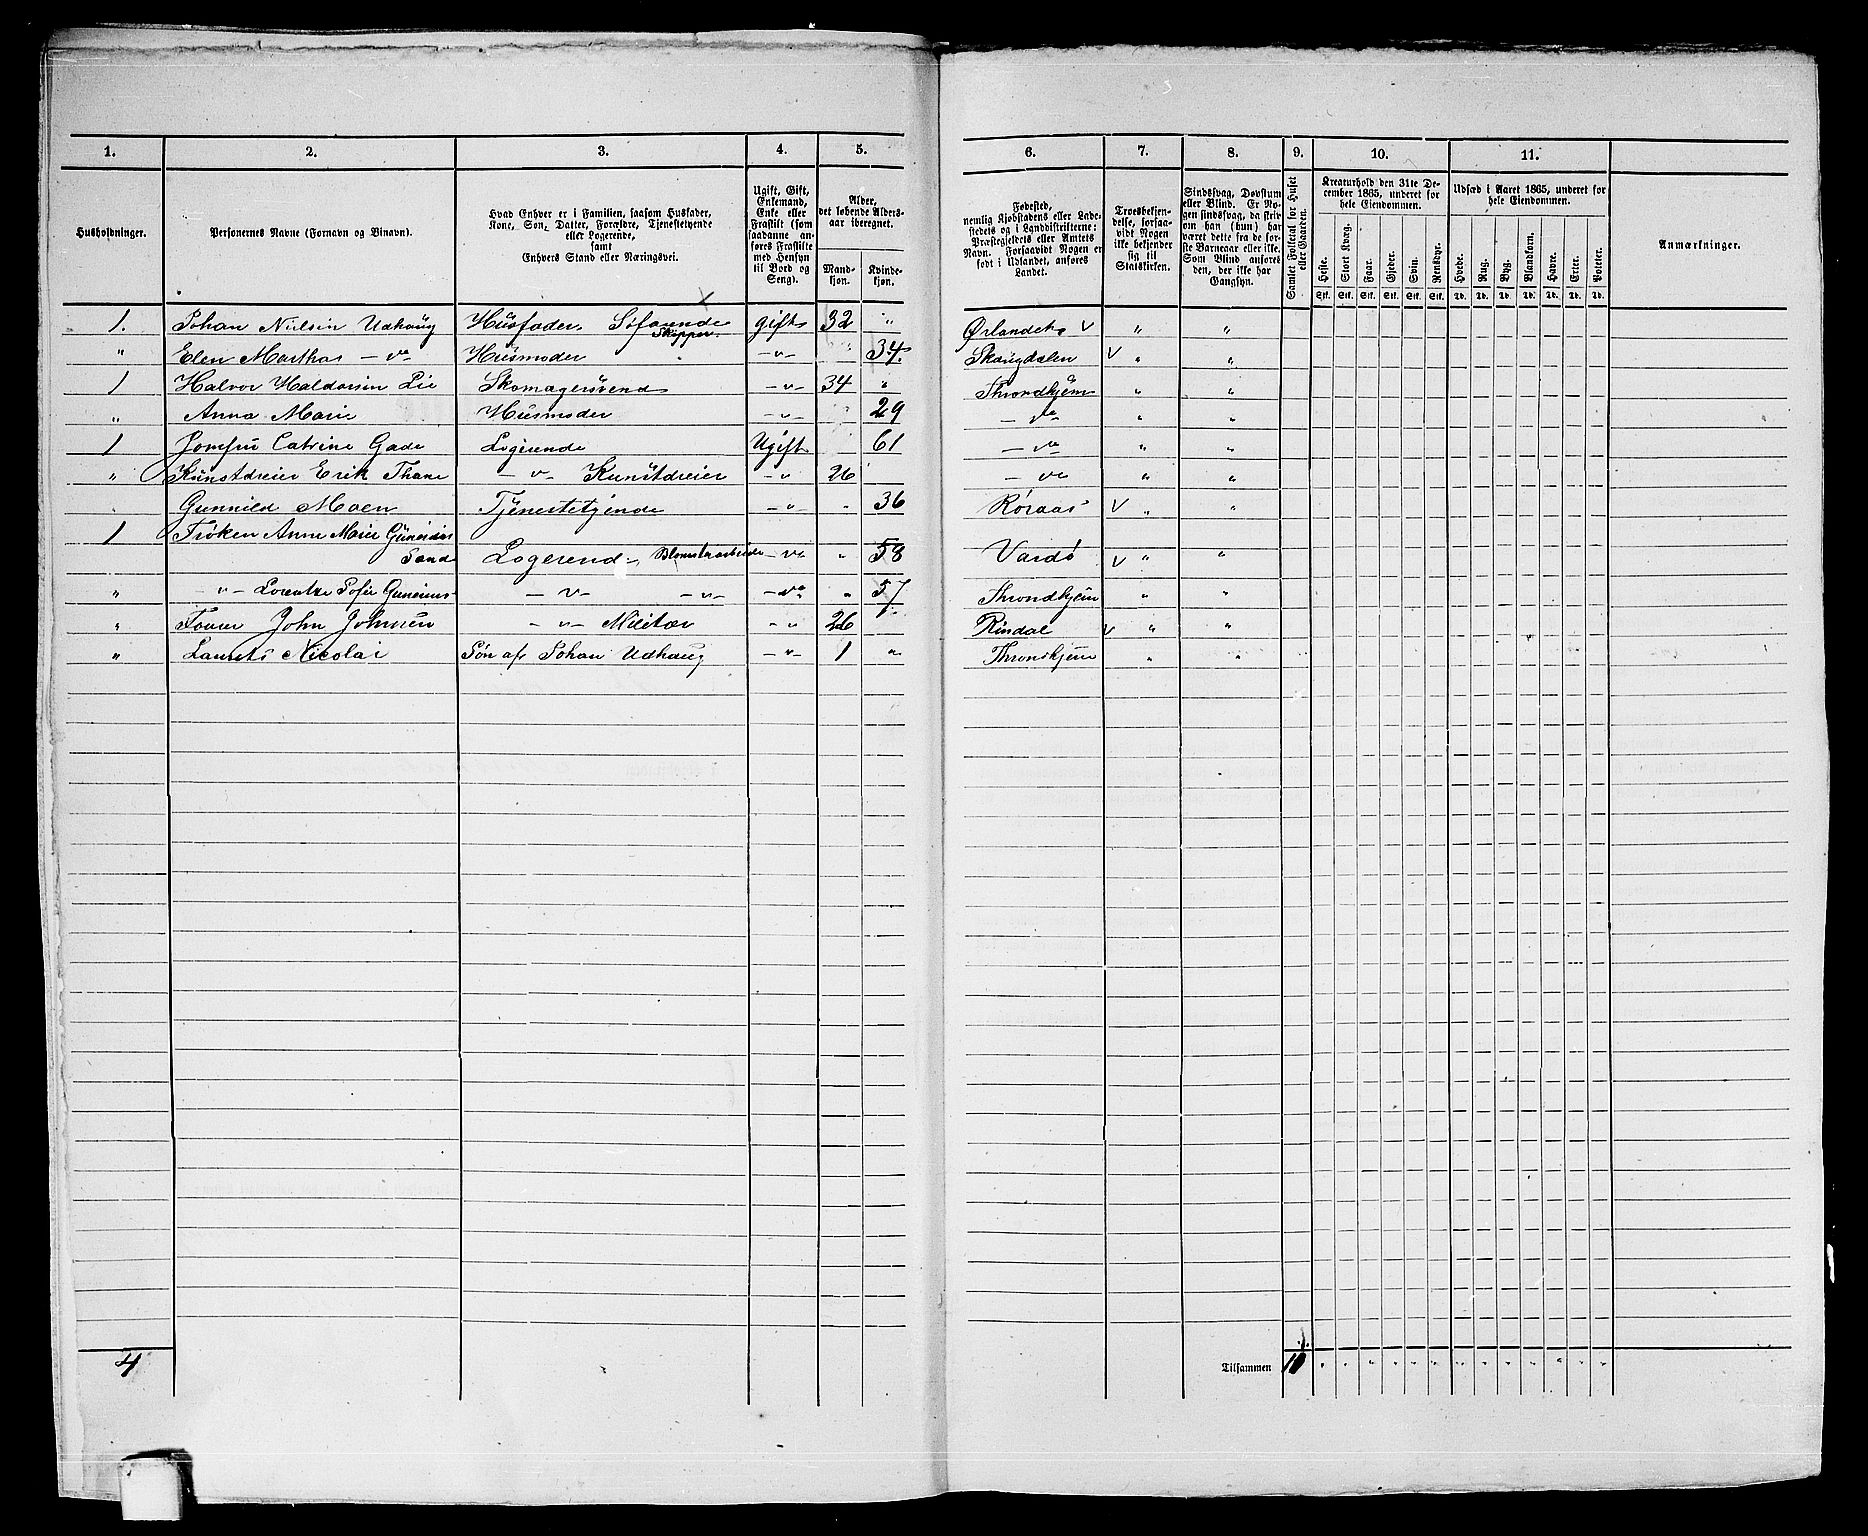 1. 2. 3. 4. 5. 6. 7. 8. 9. 10. 11.
Husholdninger.
Personernes Navne (Fornavn og Binavn).
Hvad Enhver er i Familien, saasom Husfader,
Kone, Søn, Datter, Forældre, Tjenestetyende
eller Logerende,
samt
Enhvers Stand eller Næringsvei.
Ugift, Gift,
Enkemand,
Enke eller
Fraskilt (som
saadanne an-
føres Fraskilte
med Hensyn
til Bord og
Seng).
Alder,
det løbende Alders-
aar iberegnet.
Mand-
kjøn.
Kvinde-
kjøn.
Fødested,
nemlig Kjøbstadens eller Lade-
stedets og i Landdistrikterne:
Præstegjeldets eller Amtets
Navn. Forsaavidt Nogen er
født i Udlandet, anføres
Landet.
Troesbekjen-
delse, forsaa-
vidt Nogen
ikke bekjender
sig til
Statskirken.
Sindssvag, Døvstum
eller Blind. Er No-
gen sindssvag, da skriv
om han (hun) har
været dette fra de før-
ste Barneaar eller ikke.
Som Blind anføres
den, der ikke har
Gangsyn.
Samlet Folketal for Huset
eller Gaarden.
Kreaturhold den 31te De-
cember 1865, underet for
hele Eiendommen.
Heste. Stort Kvæg. Faar. Gjeder. Svin. Rensdyr.
Stk. Stk. Stk. Stk. Stk. Stk.
Udsæd i Aaret 1865, underet for
hele Eiendommen.
Hvede. Rug. Byg. Blandkorn. Havre. Erter. Poteter.
Td. Td. Td. Td. Td. Td. Td.
Anmærkninger.
1. Johan Nielsin Udhaug Husfader Søfarende Skipper. gift 32 " Ørlandet v " "
" Elen Martha -v- Husmoder -v- " 34. Skaugdalen v " "
1 Halvor Haldorsin Lie Skomagersvend -v- 34 " Throndhjem " "
" Anna Marie Husmoder -v- 29 -v- " "
1 Jomfru Catrine Gade Logerende Ugift 61 -v- " "
" Kunstdreier Erik Thane -v- Kunstdreier -v- 26 -v- " "
Gunnild Moen Tjenestetjende -v- " 36 Røraas v " "
1 Frøken Anne Marie
Sand Logerend - -v- " 58 Vardø v " "
" -v- Sofie -v- -v- -v- " 57 Throndhjem " "
" John Johnsen -v- Militær -v- 26 Rindal v " "
" Laurits Nicolai Søn af Johan Udhaug -v- 1 " Throndhjem " "
4
Tilsammen